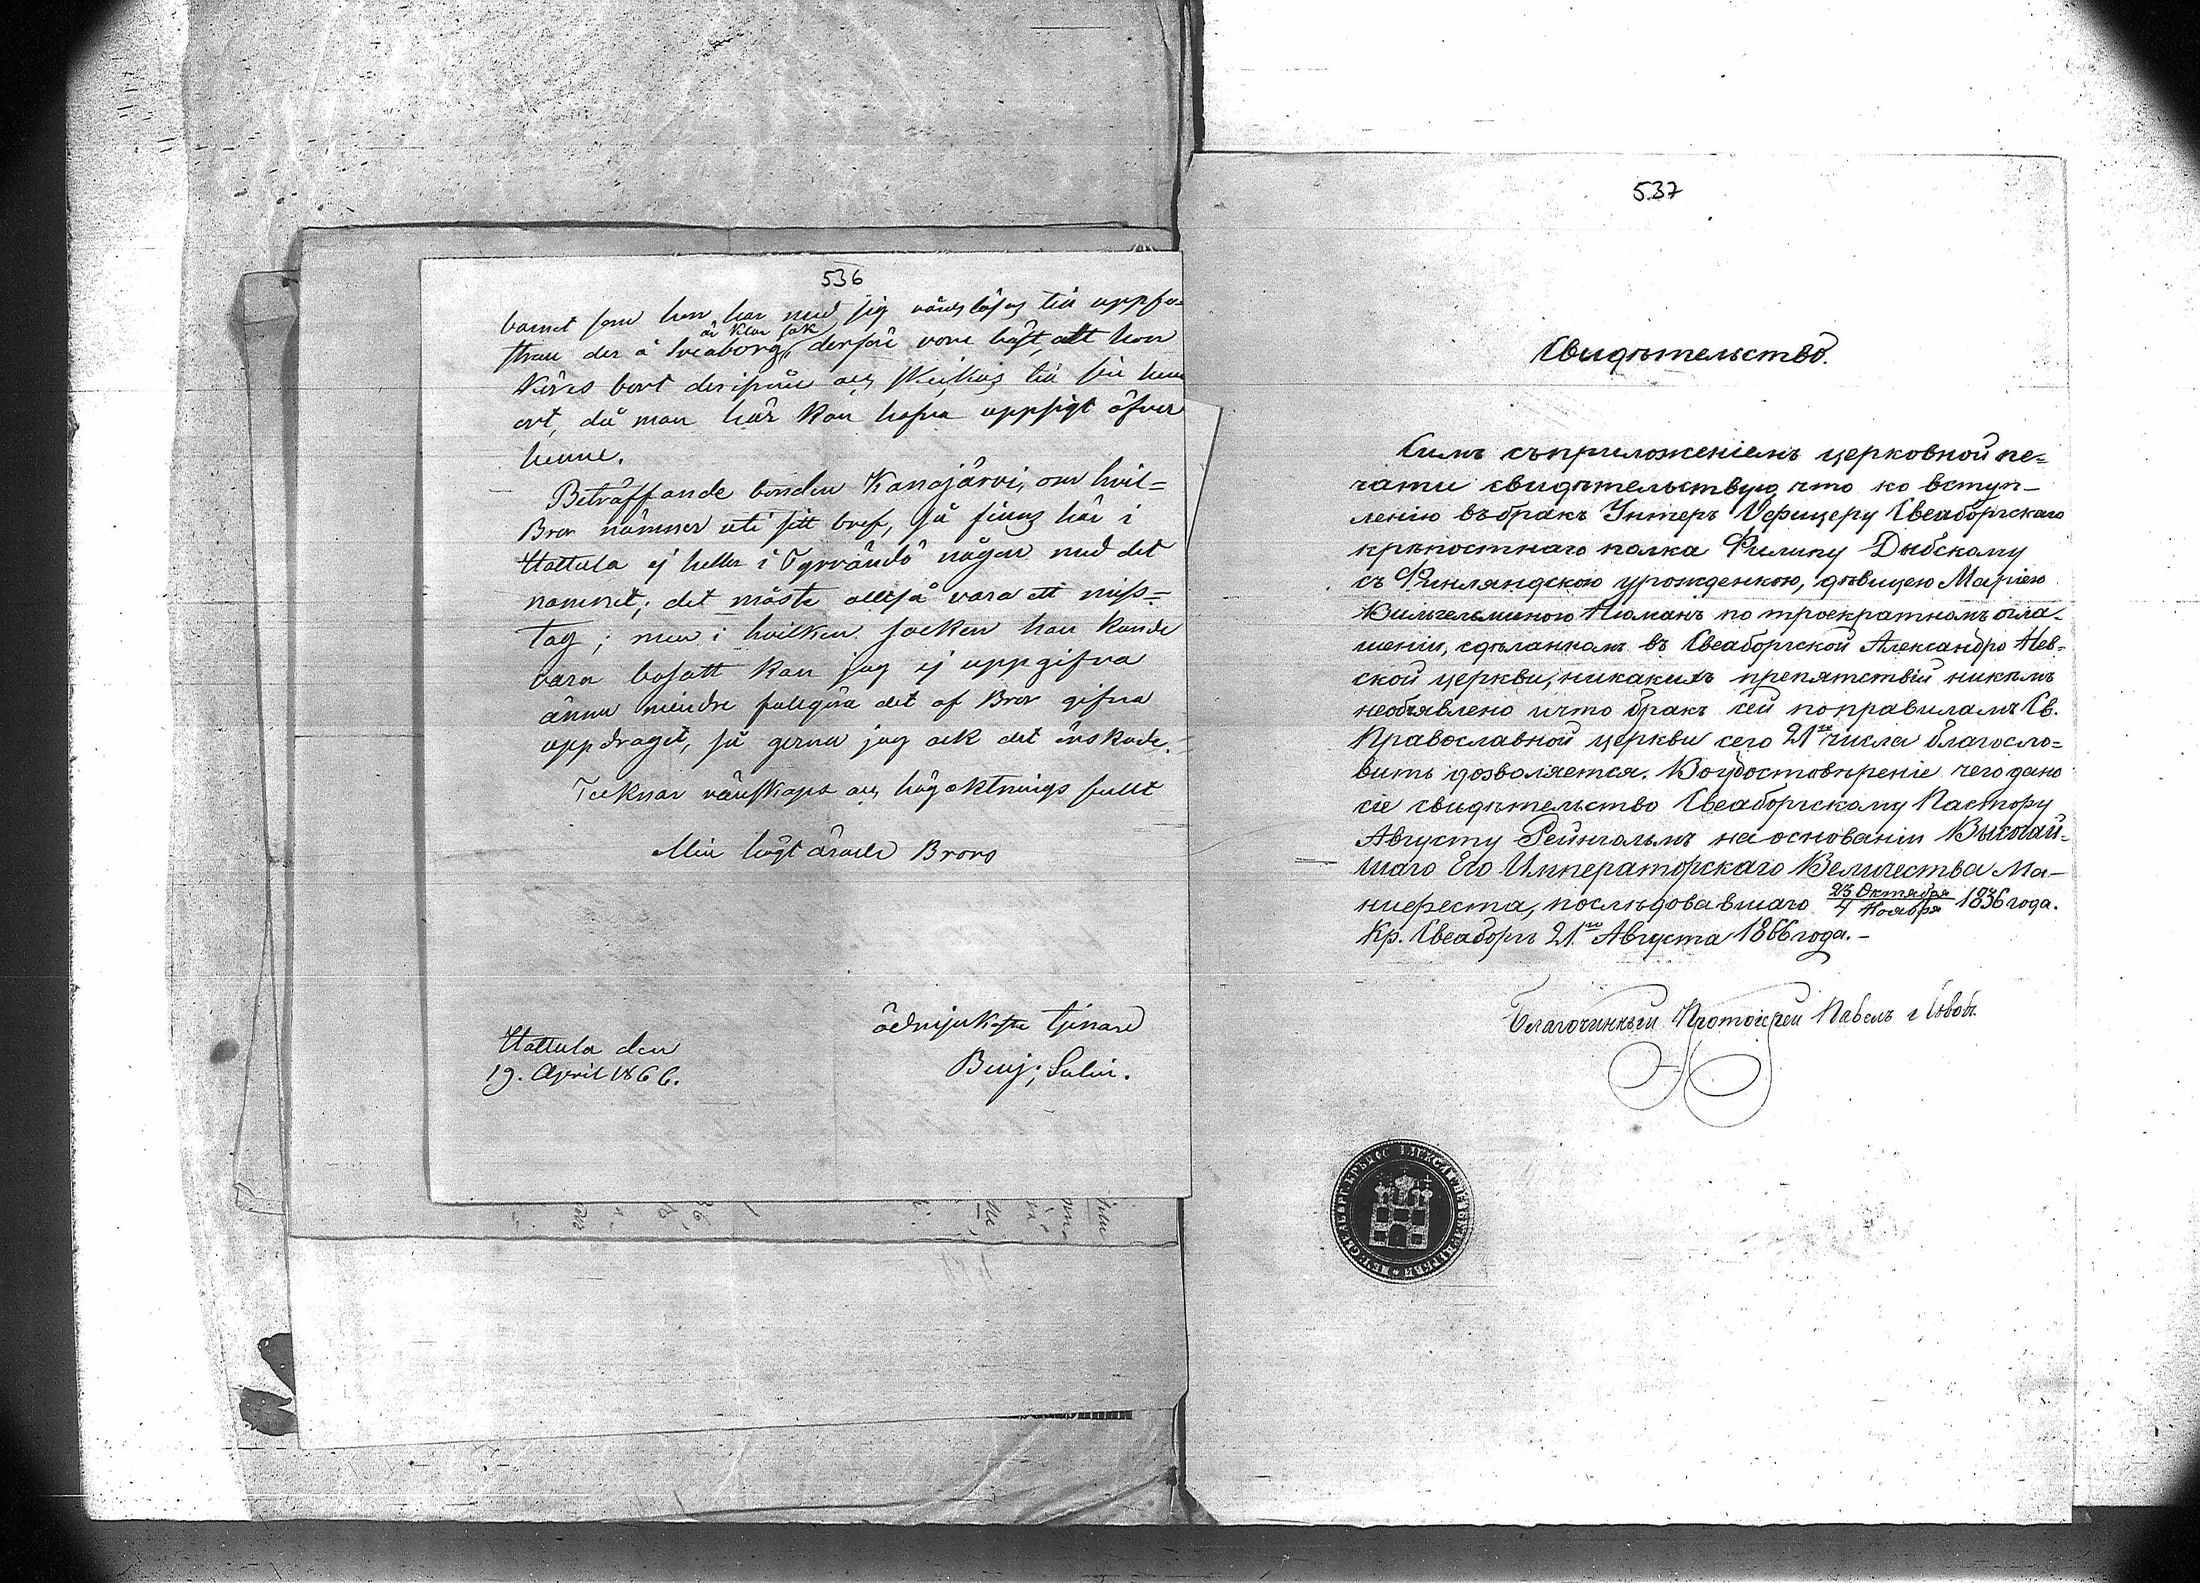 536
barnet som hon har med sig vårdslösas till uppfo-
är klar sak
stran der å Sveaborg, derföre vore bäst, att hon
köres bort derifrån och skickas till sin hem
ort, då man här kan hafva uppsigt öfver
henne.
Beträffande bonden Kanajärvi, om hvil=
Bror nämner uti sitt bref, så finns här i
Hattula ej heller i Tyrväntö någon med det
namnet; det måste alltså vara ett miss=
tag; men i hvilken socken han kunde
vara bosatt kan jag ej uppgifva
ännu mindre fullgöra det af Bror gifna
uppdraget, så gerna jag ock det önskade.
Tecknar vänskaps och högaktnings fullt
Min högt ärade Brors
ödmjukaste tjenare
Hattula den
19. April 1866.
Benj; Salin.
537
Свидѣтельство.
Симъ съприложеніемъ церковной пе=
чати свидѣтельствую, что ко вступ-
ленію въ бракъ Унтеръ Офицеру Свеаборгскаго
крѣпостнаго полка Филипу Дыбскому
съ Финляндскою урожденкою, дѣвицею Маріею
Вильгельминою Нюманъ по троекратномъ огла-
шеніи, сдѣланномъ въ Свеаборгской Александро Нев-
ской церкви, никакихъ препятствій никѣмъ
необъявлено ичто бракъ сей поправиламъ Св.
Православной церкви сего 21го числа благосло=
вить дозволяется. Воудостовѣреніе чего дано
сіе свидѣтельство Свеаборгскому Пастору
Августу Рейнгольмъ на основаніи Высочай-
шаго Его Императорскаго Величества Ма-
нифеста, послѣдовавшаго 23 Октября / 4 Ноября 1836 года.
Кр. Свеаборгъ 21го Августа 1866 года.-
Благочинный Протоіерей Павелъ